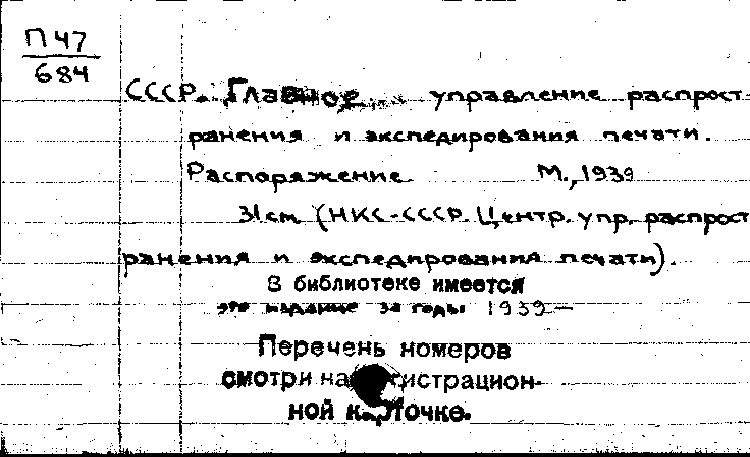 П 47
684
СССР. Главное управление распрост
ранения и экспедирования печати.
Распоряжение М., 1939
31 см (НКС-СССР. Центр. упр. распрост
ранения и экспедирования печати).
В библиотеке имеется
это издание за годы 1939—
Перечень номеров
смотри на регистрацион-
ной карточке.